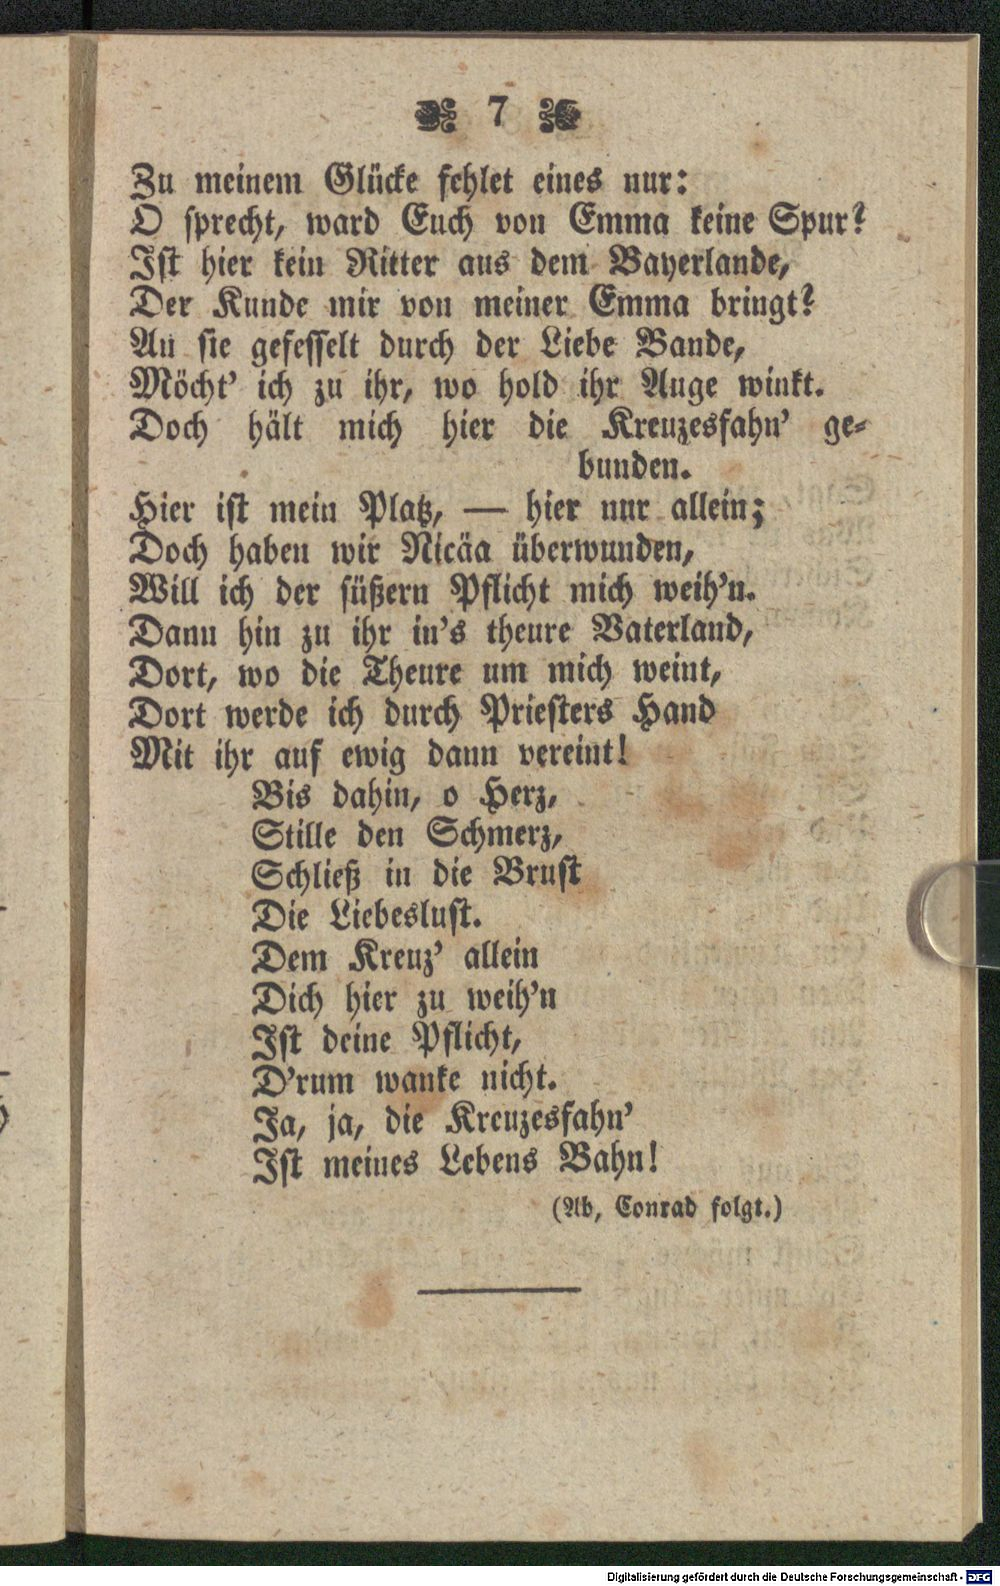 7
Zu meinem Glücke fehlet eines nur:
O sprecht, ward Euch von Emma keine Spur?
Ist hier kein Ritter aus dem Bayerlande,
Der Kunde mir von meiner Emma bringt?
An sie gefesselt durch der Liebe Bande,
Möcht' ich zu ihr, wo hold ihr Auge winkt.
Doch hält mich hier die Kreuzesfahn' ge-
bunden.
Hier ist mein Platz, — hier nur allein;
Doch haben wir Nicäa überwunden,
Will ich der süßern Pflicht mich weih'n.
Dann hin zu ihr in's theure Vaterland,
Dort, wo die Theure um mich weint,
Dort werde ich durch Priesters Hand
Mit ihr auf ewig dann vereint!
Bis dahin, o Herz,
Stille den Schmerz,
Schließ in die Brust
Die Liebeslust.
Dem Kreuz' allein
Dich hier zu weih'n
Ist deine Pflicht,
D'rum wanke nicht.
Ja, ja, die Kreuzesfahn'
Ist meines Lebens Bahn!
(Ab, Conrad folgt.)
Digitalisierung gefördert durch die Deutsche Forschungsgemeinschaft - DFG